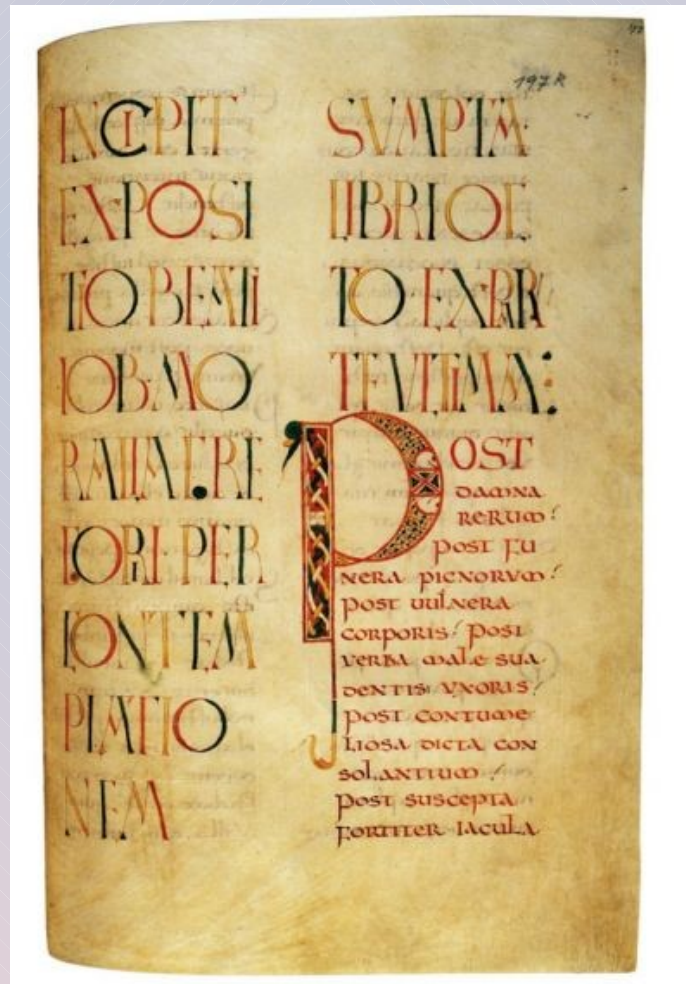 197 R
INCIPIT
EXPOSI
TIO BEATI
IOB·MO
PER
CONTEM
PLATIO
NEM
SVMPTA
LIBRI OC
TO EXPAR
TE VLTIMA:
POST
DAMNA
RERUM:
POST FU
NERA PIGNORVM:
POST UULNERA
CORPORIS: POST
VERBA MALE SUA
DENTIS VXORIS:
POST CONTUME
LIOSA DICTA CON
SOLANTIUM:
POST SUSCEPTA
FORTITER IACULA